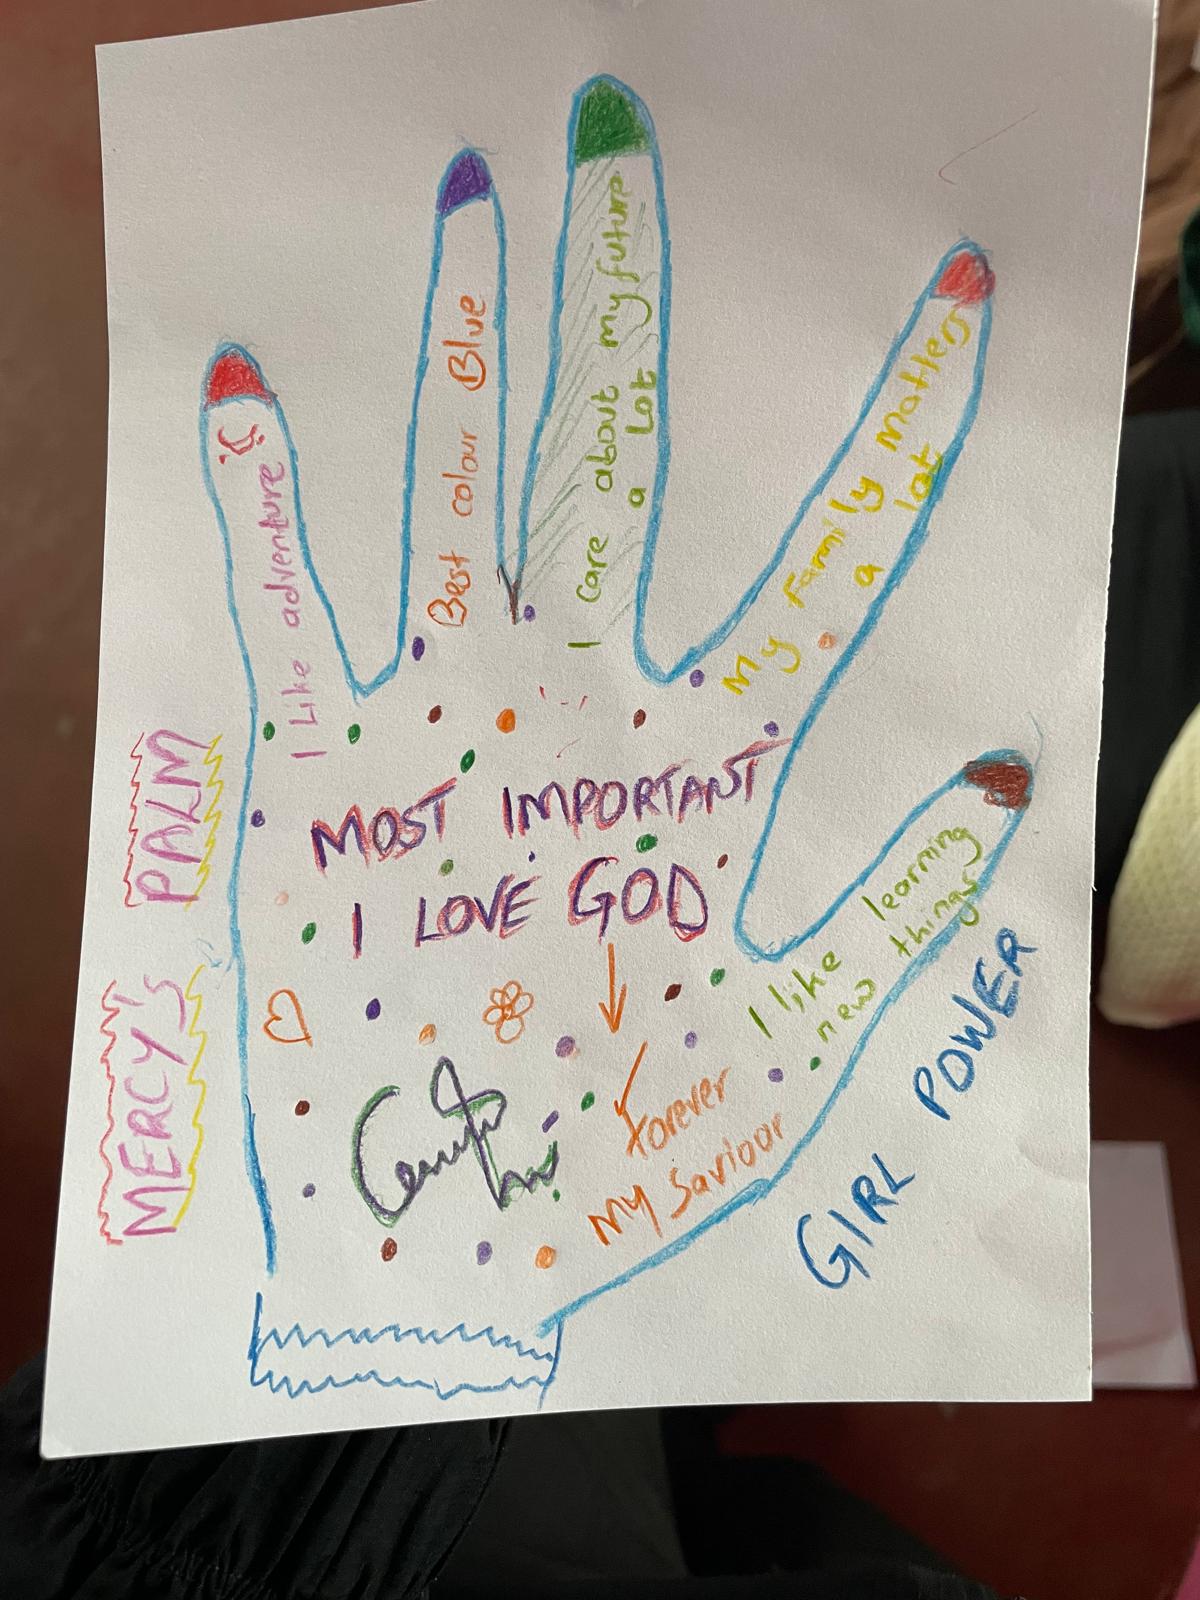 I Like adventure
Best colour Blue
I care about my future
a Lot
My Family Matters
a lot
I like learning
new things
MERCY's PALM
MOST IMPORTANT
I LOVE GOD
Forever
My Saviour
GIRL POWER